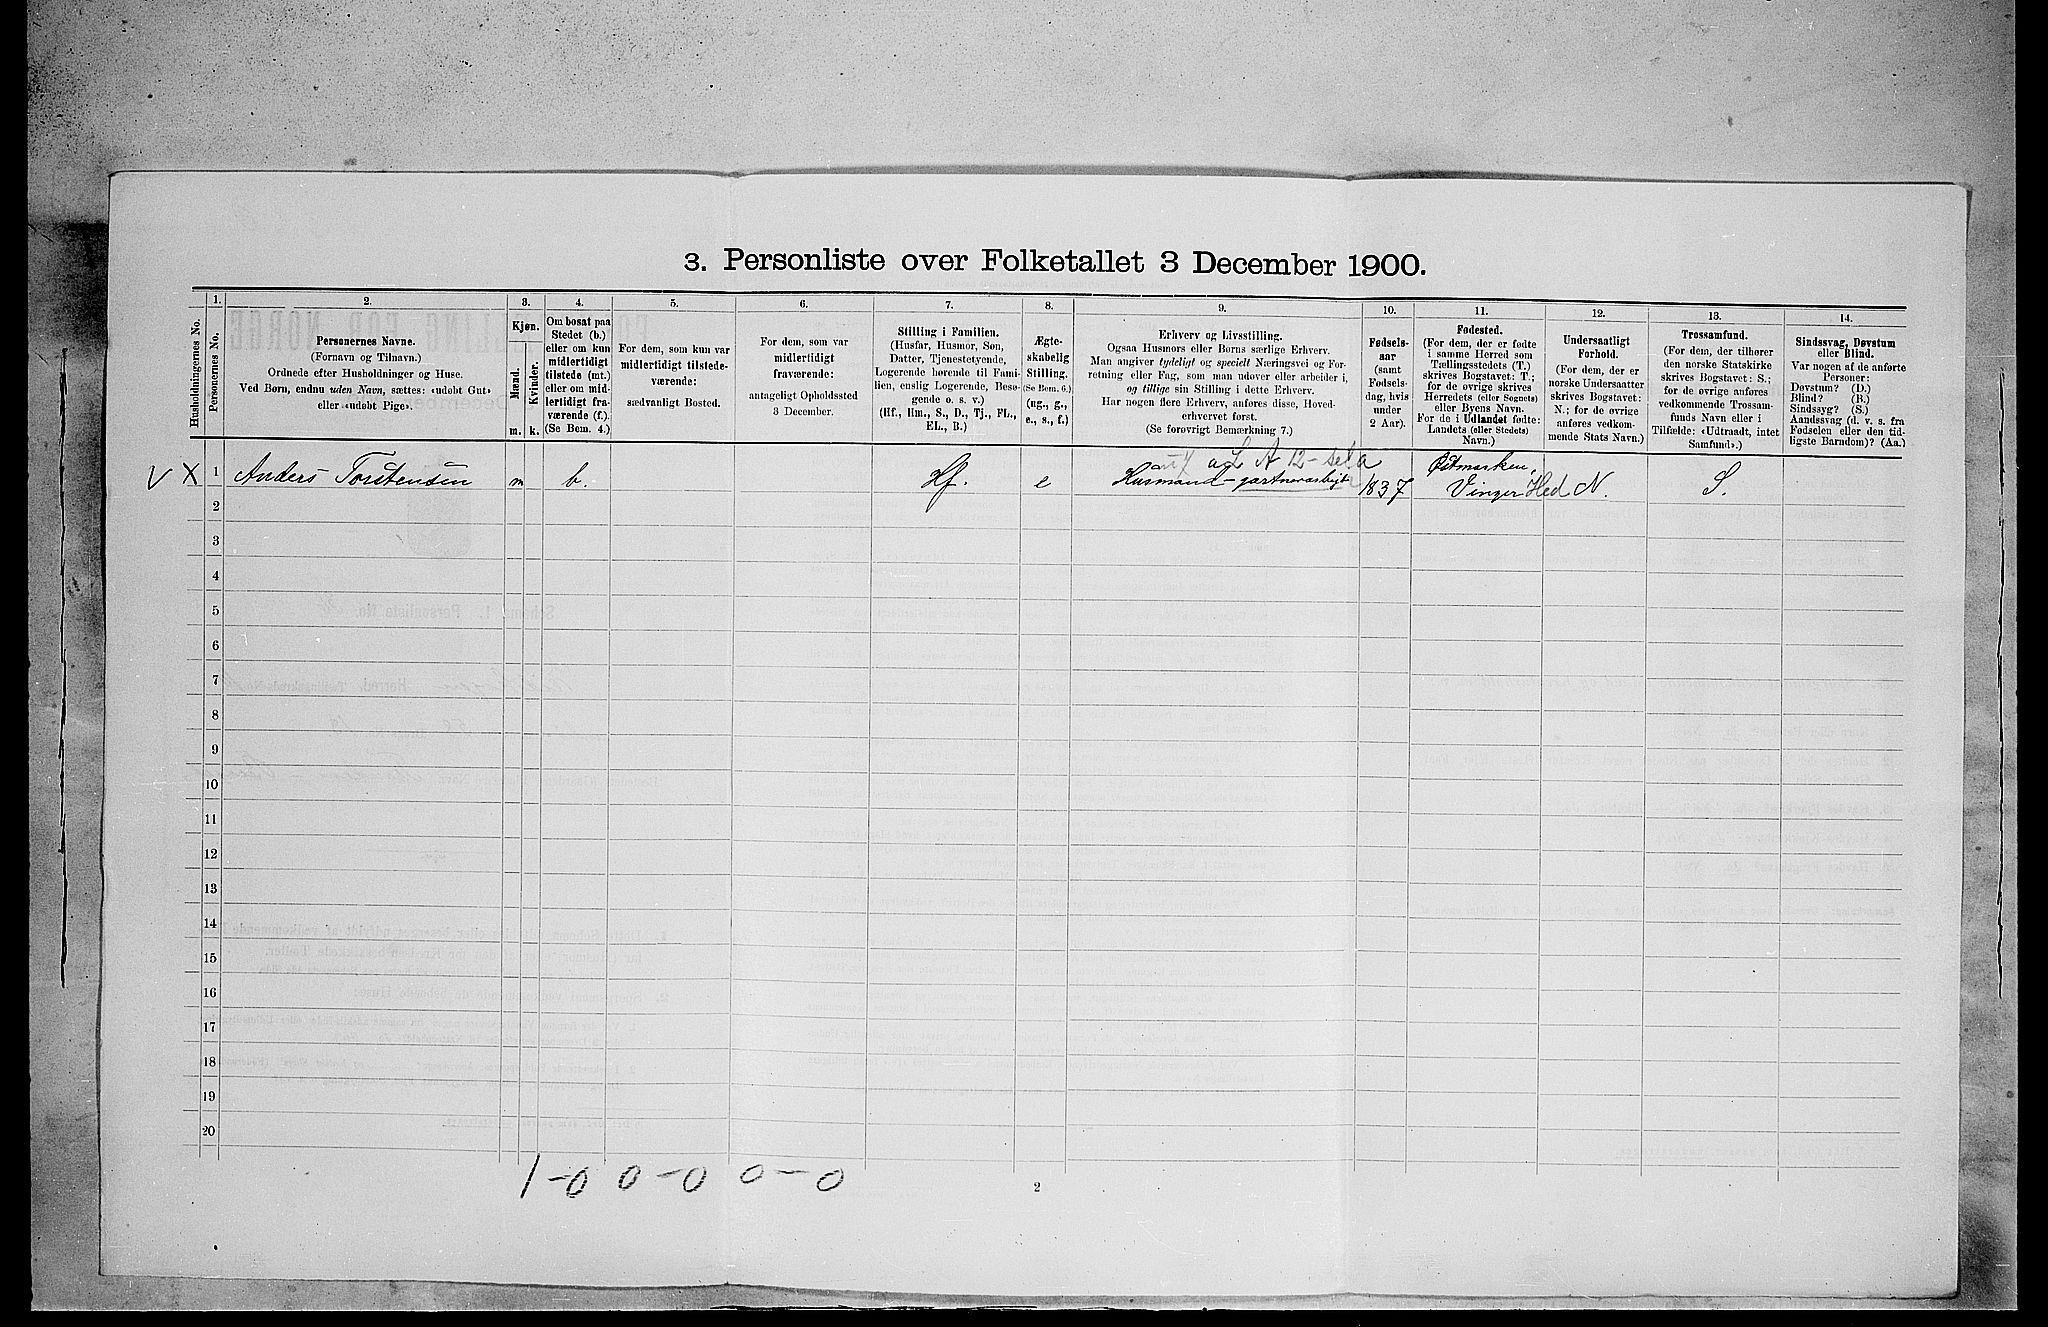 3. Personliste over Folketallet 3 December 1900.
Husholdningernes No.
1.
Personernes No.
2.
Personernes Navne.
(Fornavn og Tilnavn.)
Ordnede efter Husholdninger og Huse.
Ved Børn, endnu uden Navn, sættes: «udøbt Gut»
eller «udøbt Pige».
3.
Kjøn.
Mænd.
Kvinder.
m. k.
4.
Om bosat paa
Stedet (b.)
eller om kun
midlertidigt
tilstede (mt.)
eller om mid-
lertidigt fra-
værende (f.).
(Se Bem. 4.)
5.
For dem, som kun var
midlertidigt tilstede-
værende:
sædvanligt Bosted.
6.
For dem, som var
midlertidigt
fraværende:
antageligt Opholdssted
3 December.
7.
Stilling i Familien.
(Husfar, Husmor, Søn,
Datter, Tjenestetyende,
Logerende hørende til Fami-
lien, enslig Logerende, Besø-
gende o. s. v.)
(Hf., Hm., S., D., Tj., FL.,
EL., B.)
8.
Ægte-
skabelig
Stilling.
(Se Bem. 6.)
(ug., g.,
e., s., f.)
9.
Erhverv og Livsstilling.
Ogsaa Husmors eller Børns særlige Erhverv.
Man angiver tydeligt og specielt Næringsvei og For-
retning eller Fag, som man udøver eller arbeider i,
og tillige sin Stilling i dette Erhverv.
Har nogen flere Erhverv, anføres disse, Hoved-
erhvervet først.
(Se forøvrigt Bemærkning 7.)
10.
Fødsels-
aar
(samt
Fødsels-
dag, hvis
under
2 Aar).
11.
Fødested.
(For dem, der er fødte
i samme Herred som
Tællingsstedets (T.)
skrives Bogstavet: T.;
for de øvrige skrives
Herredets (eller Sognets)
eller Byens Navn.
For de i Udlandet fødte:
Landets (eller Stedets)
Navn.)
12.
Undersaatligt
Forhold.
(For dem, der er
norske Undersaatter
skrives Bogstavet:
N.; for de øvrige
anføres vedkom-
mende Stats Navn.)
13.
Trossamfund.
(For dem, der tilhører
den norske Statskirke
skrives Bogstavet: S.;
for de øvrige anføres
vedkommende Trossam-
funds Navn eller i
Tilfælde: «Udtraadt, intet
Samfund».)
14.
Sindssvag, Døvstum
eller Blind.
Var nogen af de anførte
Personer:
Døvstum? (D.)
Blind? (B.)
Sindssyg? (S.)
Aandssvag (d. v. s. fra
Fødselen eller den tid-
ligste Barndom)? (Aa.)
A 12
V X 1 Anders Torstensen m b. Hf. e Husmand 1837 Østmarken, Vinger Hed N. S.
2
3
4
5
6
7
8
9
10
11
12
13
14
15
16
17
18
19
20
1-0 0-0 0-0
2